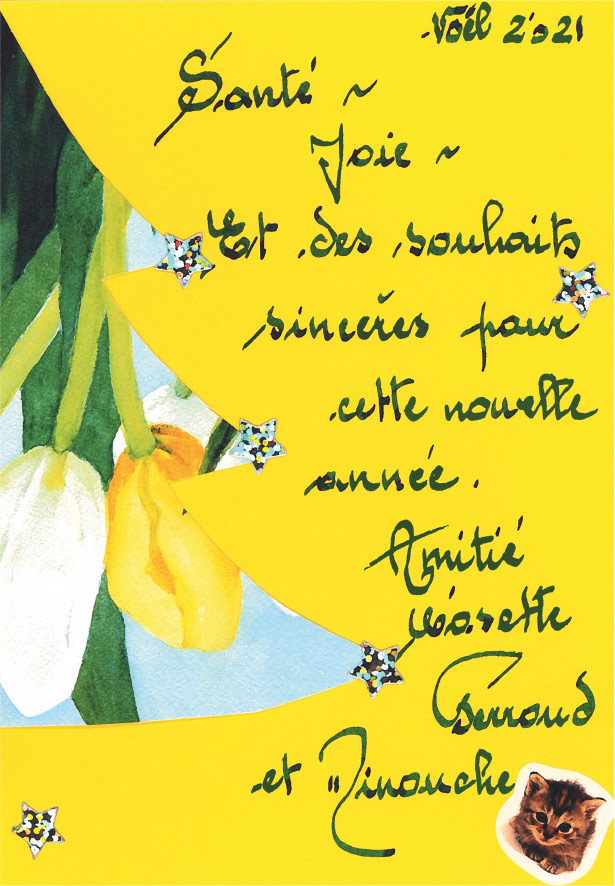 Noël 2021
Santé ~
Joie ~
Et des souhaits
sincères pour
cette nouvelle
année.
Amitié
Cosette
Perroud
et "Minouche